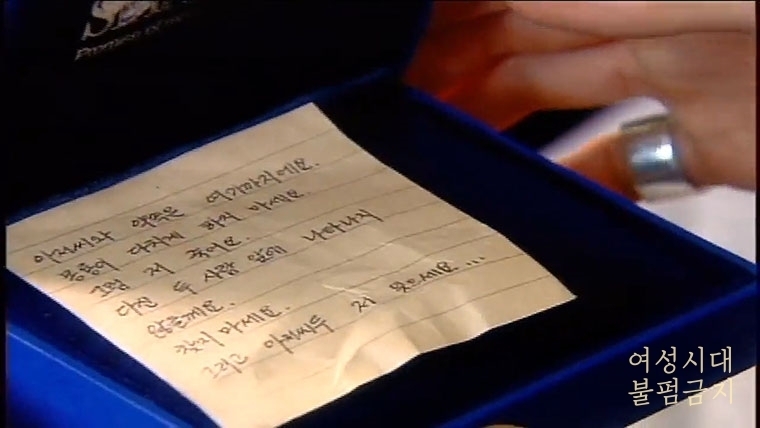 아저씨와 약속은 여기까지에요.
다치게 하지 마세요.
그럼 저 죽어요.
다신 두 사람 앞에 나타나지
않을게요.
찾지 마세요.
그리고 아저씨두 저 잊으세요...
여성시대
불펌금지